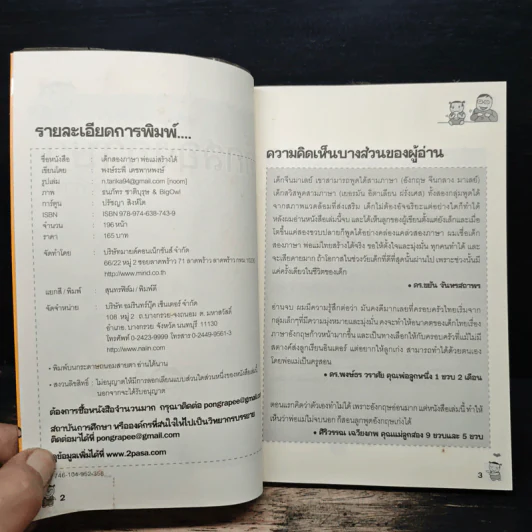 รายละเอียดการพิมพ์....
ชื่อหนังสือ : เด็กสองภาษา พ่อแม่สร้างได้
เขียนโดย : พงษ์ระพี เตชพาหพงษ์
รูปเล่ม : n.tanka94@gmail.com [noom]
ภาพ : ธนภัทร ชาติบุรุษ & BigOwl
การ์ตูน : ปรัชญา สิงห์โต
ISBN : ISBN 978-974-638-743-9
จำนวน : 196 หน้า
ราคา : 165 บาท
จัดทำโดย : บริษัทมายด์คอนเน็กชันส์ จำกัด
66/22 หมู่ 2 ซอยลาดพร้าว 71 ลาดพร้าว ลาดพร้าว กทม
http://www.mind.co.th
แยกสี / พิมพ์ : สุนทรฟิล์ม / พิมพ์ดี
จัดจำหน่าย : บริษัท อมรินทร์บุ๊ค เซ็นเตอร์ จำกัด
108 หมู่ 2 ถ.บางกรวย-จงถนอม ต. มหาสวัสดิ์
อำเภอ. บางกรวย จังหวัด นนทบุรี 11130
โทรศัพท์ 0-2423-9999 โทรสาร 0-2449-9561-3
http://www.naiin.com
• พิมพ์บนกระดาษถนอมสายตา อ่านได้นาน
• สงวนลิขสิทธิ์ : ไม่อนุญาตให้มีการลอกเลียนแบบส่วนใดส่วนหนึ่งของหนังสือเล่มนี้
นอกจากจะได้รับอนุญาต
ต้องการซื้อหนังสือจำนวนมาก กรุณาติดต่อ pongrapee@gmail.com
สถาบันการศึกษา หรือองค์กรที่สนใจให้ไปเป็นวิทยากรบรรยาย
ติดต่อมาได้ที่ pongrapee@gmail.com
ข้อมูลเพิ่มได้ที่ www.2pasa.com
2
ความคิดเห็นบางส่วนของผู้อ่าน
เด็กจีนมาเลย์ เขาสามารถพูดได้สามภาษา (อังกฤษ จีนกลาง มาเลย์)
เด็กสวิสพูดสามภาษา (เยอรมัน อิตาเลียน ฝรั่งเศส) ทั้งสองกลุ่มพูดได้
จากสภาพแวดล้อมที่ส่งเสริม เด็กไม่ต้องอัจฉริยะแต่อย่างใดก็ทำได้
หลังผมอ่านหนังสือเล่มนี้จบ และได้เห็นลูกของผู้เขียนตั้งแต่ยังเล็กและเมื่อ
โตขึ้นแต่สองขวบปลายก็พูดได้อย่างคล่องแคล่วสองภาษา ผมเชื่อเด็ก
สองภาษา พ่อแม่ไทยสร้างได้จริง ขอให้ตั้งใจและมุ่งมั่น ทุกคนทำได้ และ
จะเสียดายมาก ถ้าโอกาสในช่วงวัยเด็กที่ดีที่สุดนั้นผ่านไป เพราะช่วงนั้นมี
แค่ครั้งเดียวในชีวิตของเด็ก
• ดร.ธเนิน จันทรสถาพร
อ่านจบ ผมมีความรู้สึกต่อว่า มันคงดีมากเลยที่ครอบครัวไทยเริ่มจาก
กลุ่มเล็กๆที่มีความมุ่งหมายและมุ่งมั่น คงจะทำให้อนาคตของเด็กไทยเรื่อง
ภาษาอังกฤษก้าวหน้ามากขึ้น และเป็นทางเลือกให้กับครอบครัวที่แม้ไม่มี
สตางค์ส่งลูกเรียนอินเตอร์ แต่อยากให้ลูกเก่ง สามารถทำได้ด้วยตนเอง
โดยพ่อแม่เป็นครูสอน
• ดร.พงษ์อร วราศัย คุณพ่อลูกหนึ่ง 1 ขวบ 2 เดือน
ตอนแรกคิดว่าตัวเองทำไม่ได้ เพราะอังกฤษอ่อนมาก แต่หนังสือเล่มนี้ ทำให้
เห็นว่าพ่อแม่ไม่จบนอก ก็สอนลูกพูดอังกฤษเก่งได้
• ศิริวรรณ เฉวียงภพ คุณแม่ลูกสอง 9 ขวบและ 5 ขวบ
3